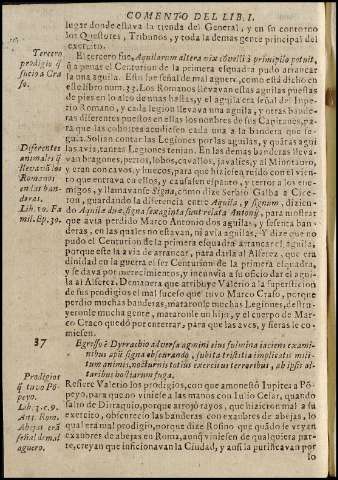 COMENTO DEL LIB. I.
lugar donde estava la tienda del General, y en su contorno
los Questores, Tribunos, y toda la demas gente principal del
exercito.
El tercero fue, Aquilarum altera vix convelli à primipilo potuit,
q̃ a penas el Centurion de la primera esquadra pudo arrancar
la una aguila. Esto fue señal de mal aguero, como está dicho en
este libro num. 33. Los Romanos llevavan estas aguilas puestas
de pies en lo alto de unas hastas, y el aguila era señal del Imperio
Romano, y cada legion llevava una aguila, y otras vanderas
diferentes puestos en ellas los nombres de sus Capitanes, para
que las cohortes acudiessen cada una a la bandera que seguia.
Solian contar las Legiones por las aguilas, y quãtas aguilas
avia, tantas Legiones tenian. En las demas banderas llevavan
dragones, perros, lobos, cavallos, javalies, y al Minotauro,
y eran con cavos, y huecos, para que hiziessen reido con el viento
que entrava en ellos, y causassen espanto, y terror a los enemigos,
y llamavanse Signa, como dize Sergio Galba a Ciceron,
guardando la diferencia entre Aquila, y signum, diziendo
Aquila duæ, signa sexaginta sunt relata Antonij, para mostrar
que avia perdido Marco Antonio dos aguilas, y sesenta banderas,
en las quales no estavan, ni avia aguilas. Y dize que no
pudo el Centurion de la primera esquadra arrancar el aguila,
porque este la avia de arrancar, para darla al Alferez, que era
dinidad en la guerra el ser Centurion de la primera esquadra,
y se dava por merecimientos, y incumvia a su oficio dar el aguila
al Alferez. Demanera que atribuye Valerio a la supersticion
de sus prodigios el mal sucesso que tuvo Marco Craso, porque
perdio muchas banderas, mataronle muchas Legiones, destruyeronle
mucha gente, mataronle un hijo, y el cuerpo de Marco
Craco quedó por enterrar, para que las aves, y fieras le comiessen.
Tercero
prodigio q̃
sucio a Craso.
Diferentes
animales q̃
llevavã los
Romanos
en las banderas.
Lib. 10. Famil.
Ep. 30.
37
Egresso è Dyrrachio adversa agmini eius fulmina iaciens examinibus
apũ signa obscurando, subita tristitia implicatis militum
animis, nocturnis totius exercitus terroribus, ab ipsis altaribus
hostiarum fuga.
Prodigios
q̃ tuvo Põpeyo.
Lib. 3. c. 9.
Ant. Rom.
Abejas erã
señal de mal
aguero.
Refiere Valerio los prodigios, con que amonestó Iupiter a Põpeyo,
para que no viniesse a las manos con Iulio Cesar, quando
salio de Dirraquio, porque arrojó rayos, que hizieron mal a su
exercito, obscurecio las banderas con exanbres de abejas, lo
qual era mal prodigio, porque dize Rosino que quãdo se veyan
exanbres de abejas en Roma, aunq̃ viniessen de qualquiera parte,
creyan que inficionavan la Ciudad, y aussi la purificavan por
lo